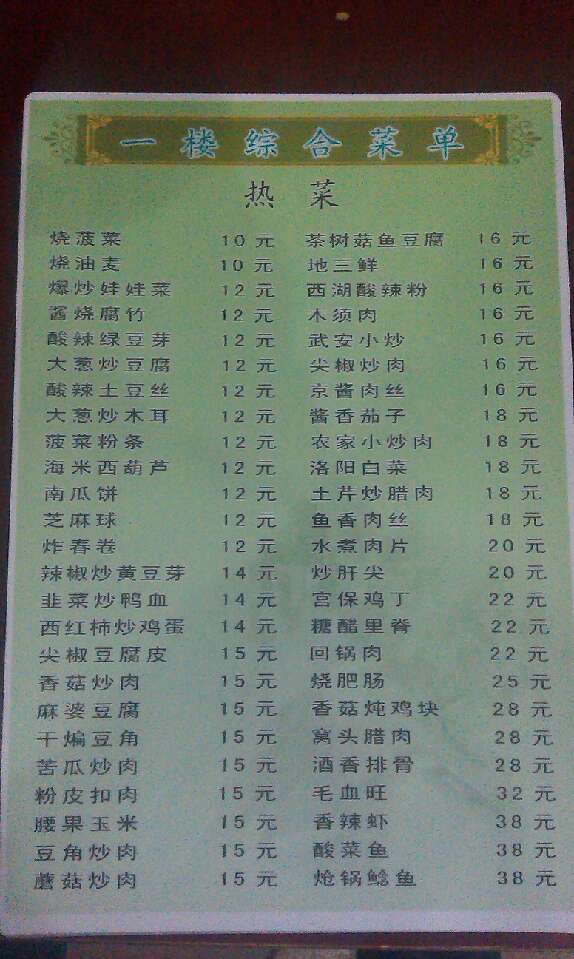 一楼综合菜单
热菜
烧菠菜 10元
烧油麦 10元
爆炒娃娃菜 12元
酱烧腐竹 12元
酸辣绿豆芽 12元
大葱炒豆腐 12元
酸辣土豆丝 12元
大葱炒木耳 12元
菠菜粉条 12元
海米西葫芦 12元
南瓜饼 12元
芝麻球 12元
炸春卷 12元
辣椒炒黄豆芽 14元
韭菜炒鸭血 14元
西红柿炒鸡蛋 14元
尖椒豆腐皮 15元
香菇炒肉 15元
麻婆豆腐 15元
干煸豆角 15元
苦瓜炒肉 15元
粉皮扣肉 15元
腰果玉米 15元
豆角炒肉 15元
蘑菇炒肉 15元
茶树菇鱼豆腐 16元
地三鲜 16元
西湖酸辣粉 16元
木须肉 16元
武安小炒 16元
尖椒炒肉 16元
京酱肉丝 16元
酱香茄子 18元
农家小炒肉 18元
洛阳白菜 18元
土芹炒腊肉 18元
鱼香肉丝 18元
水煮肉片 20元
炒肝尖 20元
宫保鸡丁 22元
糖醋里脊 22元
回锅肉 22元
烧肥肠 25元
香菇炖鸡块 28元
窝头腊肉 28元
酒香排骨 28元
毛血旺 32元
香辣虾 38元
酸菜鱼 38元
炝锅鲶鱼 38元